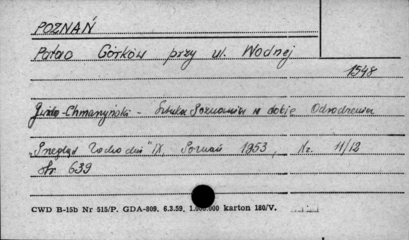 POZNAŃ
Pałac Górków przy ul. Wodnej
1548
Chmarzyński - Sztuka Poznania w dobie Odrodzenia
Przegląd Zachodni" IX, Poznań 1953, Nr. 11/12
str. 639
CWD B-15b Nr 515/P. GDA-809. 6.3.59. 1.000.000 karton 180/V.